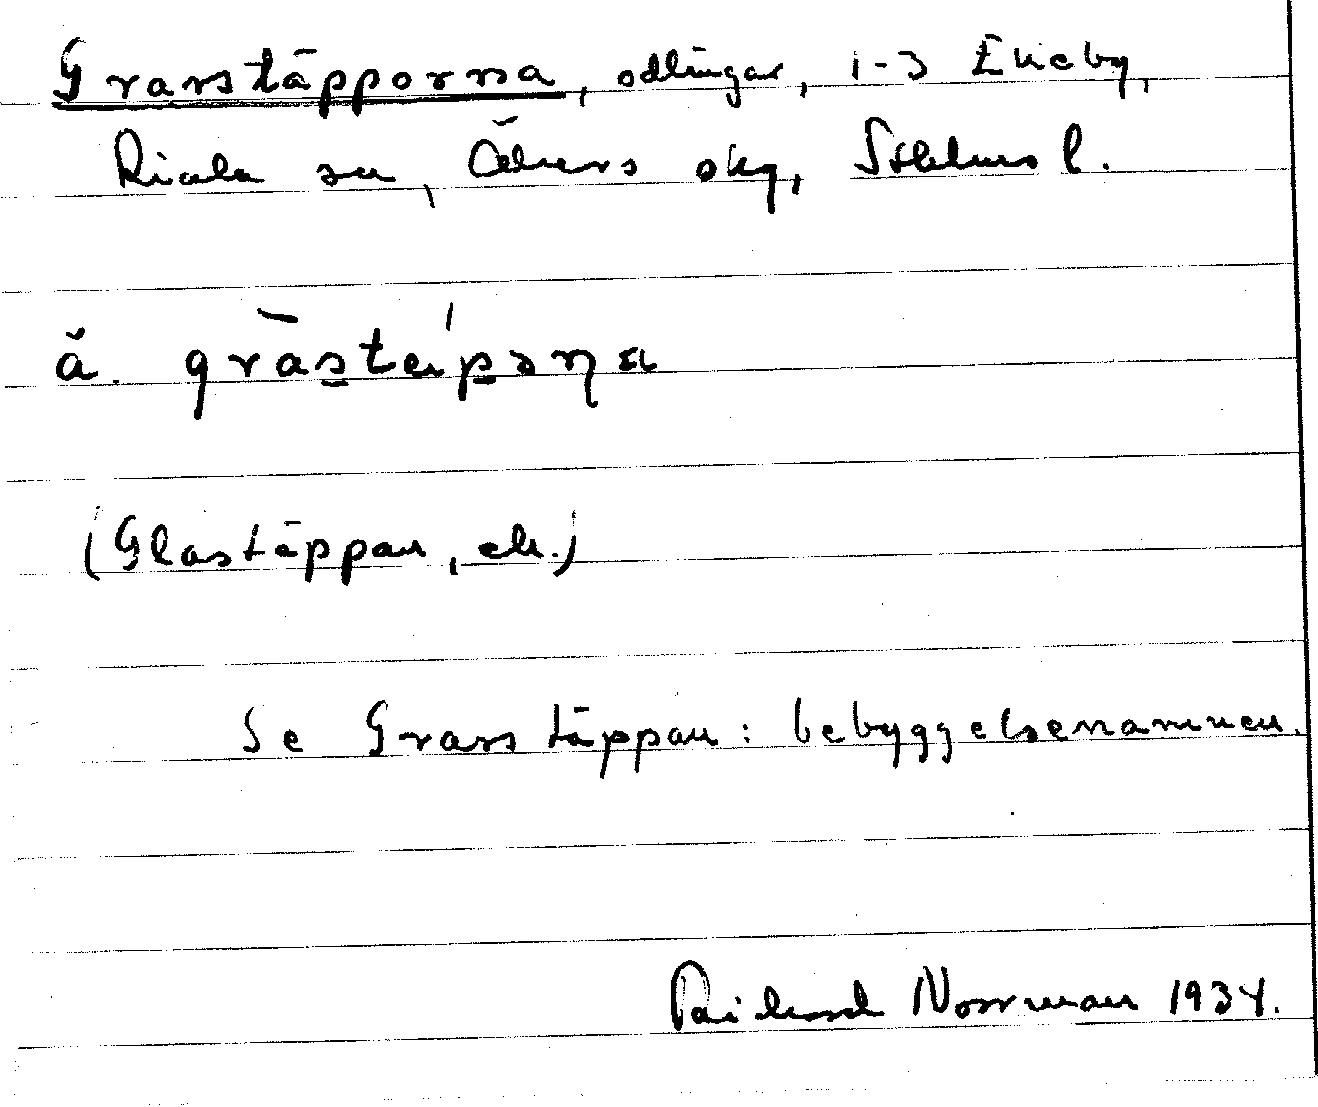 Granstäpporna, odlingar, 1-3 Ekeby,
Riala sn, Åkers skg, Sthlms l.
å.
(Glastäppan, ek.)
Se Granstäppan: bebyggelsenamnen.
Norrman 1934.